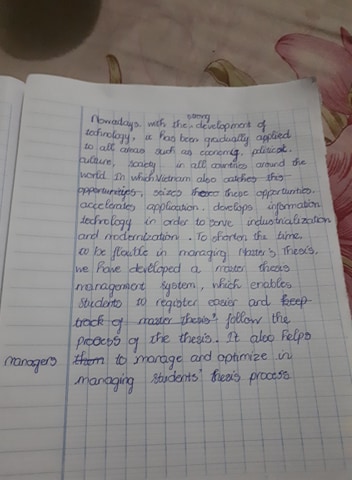 strong
Nowadays, with the development of
technology, it has been gradually applied
to all areas such as economy, political
culture, society in all countries around the
world. In which Vietnam also catches this
opportunities, seizes these opportunities
accelerates application, develops information
technology in order to serve industrialization
and modernization. To shorten the time,
to be flexible in managing Master's thesis,
we have developed a master thesis
management system, which enables
students to register easier and keep
track of master thesis' follow the
process of the thesis. It also helps
managers them to manage and optimize in
managing students' thesis process